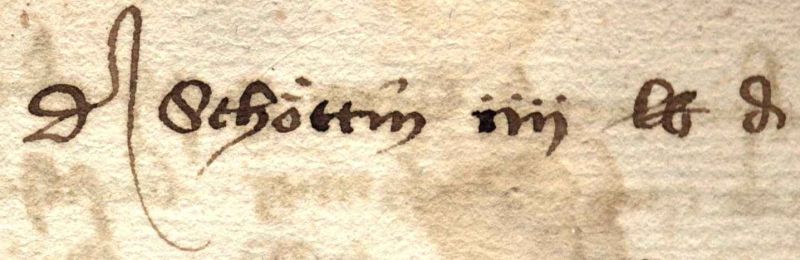 d Schöttin iiij ℔ ₰